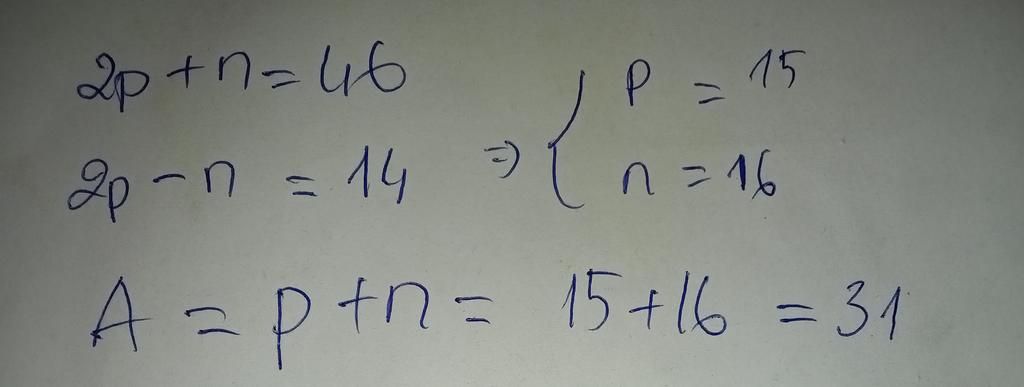 2p + n = 46
2p - n = 14 => { p = 15
n = 16
A = p + n = 15 + 16 = 31